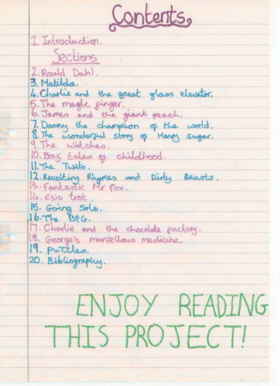 Contents
1. Introduction.
Sections
2. Roald Dahl.
3. Matilda.
4. Charlie and the great glass elevator.
5. The magic finger.
6. James and the giant peach.
7. Danny the champion of the world.
8. The wonderful story of Henry sugar.
9. The Witches.
10. Boy, tales of childhood.
11. The Twits.
12. Revolting Rhymes and Dirty Beasts.
13. Fantastic Mr Fox.
14. Esio trot.
15. Going Solo.
16. The BFG.
17. Charlie and the chocolate factory.
18. George's marvellous medicine.
19. Puzzles.
20. Bibliography.
ENJOY READING
THIS PROJECT!